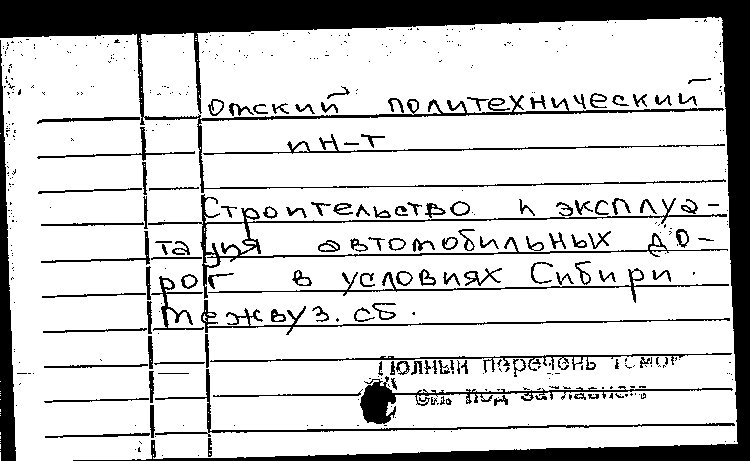 Омский политехнический
ин-т
Строительство и эксплуа-
тация автомобильных до-
рог в условиях Сибири.
Межвуз. сб.
Полный перечень томов
см. под заглавием